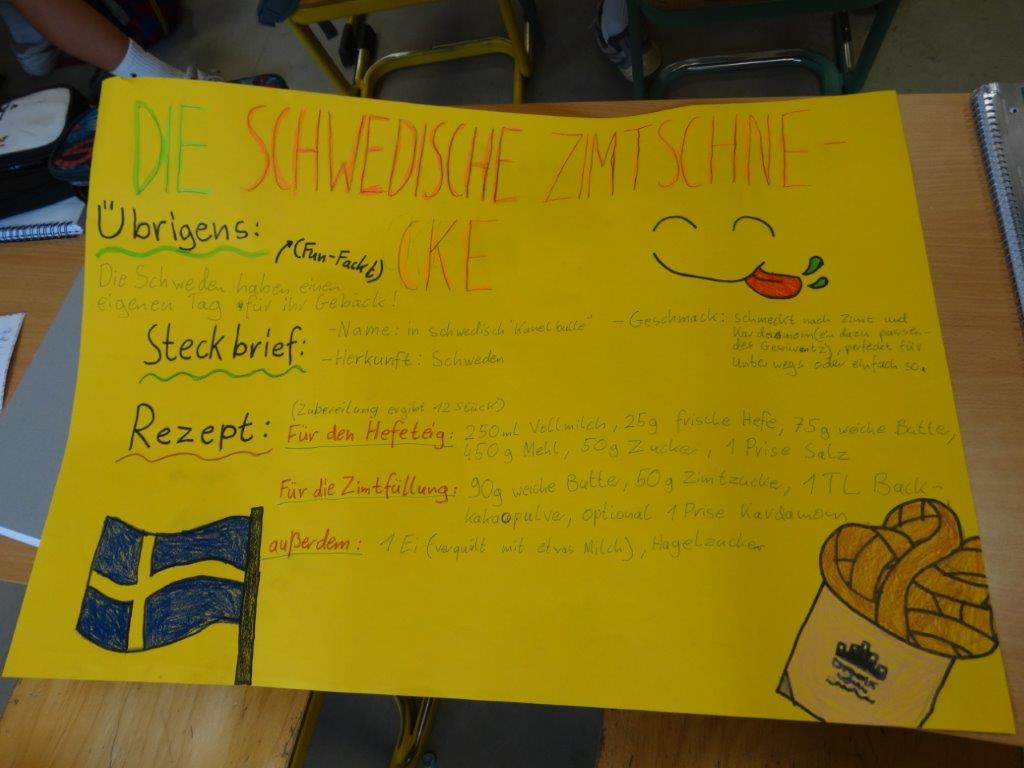 DIE SCHWEDISCHE ZIMTSCHNE-
CKE
Übrigens:
(Fun-Fackt)
Die Schweden haben einen
eigenen Tag für ihr Gebäck!
Steckbrief:
-Name: in schwedisch "Kanelbulle"
-Herkunft: Schweden
-Geschmack: schmeckt nach Zimt und
Kardamom (ein dazu passen-
des Gewürz), perfeckt für
Unterwegs oder einfach so.
Rezept:
(Zubereitung ergibt 12 Stück)
Für den Hefeteig: 250ml Vollmilch, 25g frische Hefe, 75g weiche Butter,
450g Mehl, 50g Zucker, 1 Prise Salz
Für die Zimtfüllung: 90g weiche Butter, 50g Zimtzucker, 1TL Back-
kakaopulver, optional 1 Prise Kardamom
außerdem: 1 Ei (verquirlt mit etwas Milch), Hagelzucker